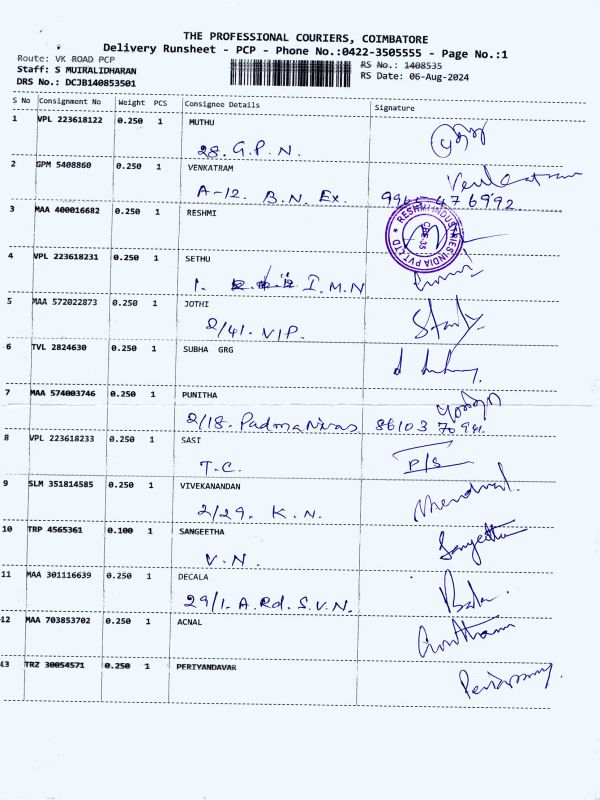 THE PROFESSIONAL COURIERS, COIMBATORE
Delivery Runsheet - PCP - Phone No.:0422-3505555 - Page No.:1
Route: VK ROAD PCP
RS No.: 1408535
Staff: S MUIRALIDHARAN
RS Date: 06-Aug-2024
DRS No.: DCJB140853501
S No Consignment No Weight PCS Consignee Details Signature
1 VPL 223618122 0.250 1 MUTHU
28. G.P.N.
2 GPM 5408860 0.250 1 VENKATRAM
A-12. B.N. Ex.
3 MAA 400016682 0.250 1 RESHMI
RESHMI INDUSTRIES INDIA PVT. LTD
4 VPL 223618231 0.250 1 SETHU
1. I.M.N
5 MAA 572022873 0.250 1 JOTHI
2/41. V.I.P.
6 TVL 2824630 0.250 1 SUBHA GRG
7 MAA 574003746 0.250 1 PUNITHA
2/18. Padma Nivas 86103 70
8 VPL 223618233 0.250 1 SASI
T.C. P/S
9 SLM 351814585 0.250 1 VIVEKANANDAN
2/29. K.N.
10 TRP 4565361 0.100 1 SANGEETHA
Sangeetha
V.N.
11 MAA 301116639 0.250 1 DECALA
29/1. A.Rd. S.V.N. Bala
12 MAA 703853702 0.250 1 ACNAL
13 TRZ 30054571 0.250 1 PERIYANDAVAR